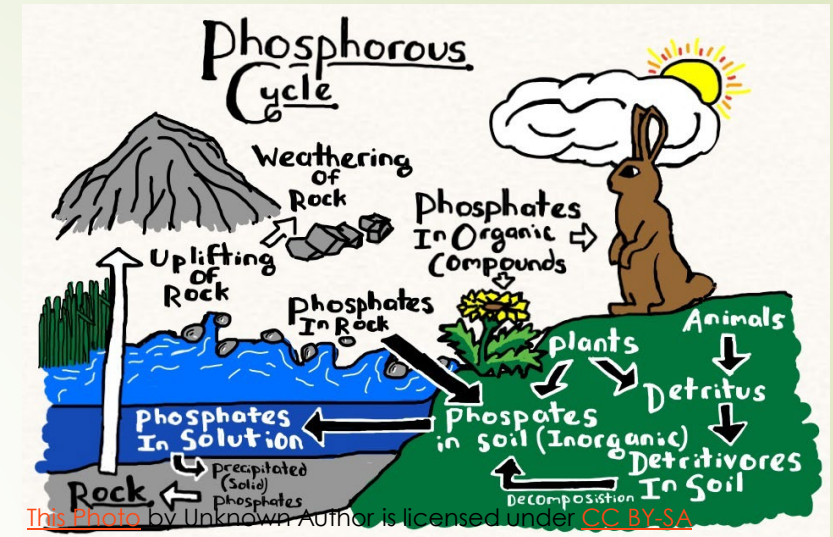 Phosphorous
Cycle
Weathering
of
Rock
Uplifting
of
Rock
Phosphates
In Organic
Compounds
Phosphates
In Rock
Plants
Animals
Detritus
Phospates
in soil (Inorganic)
Detritivores
In Soil
Decomposistion
Phosphates
In Solution
precipitated
(Solid)
phosphates
Rock
This Photo by Unknown Author is licensed under CC BY-SA